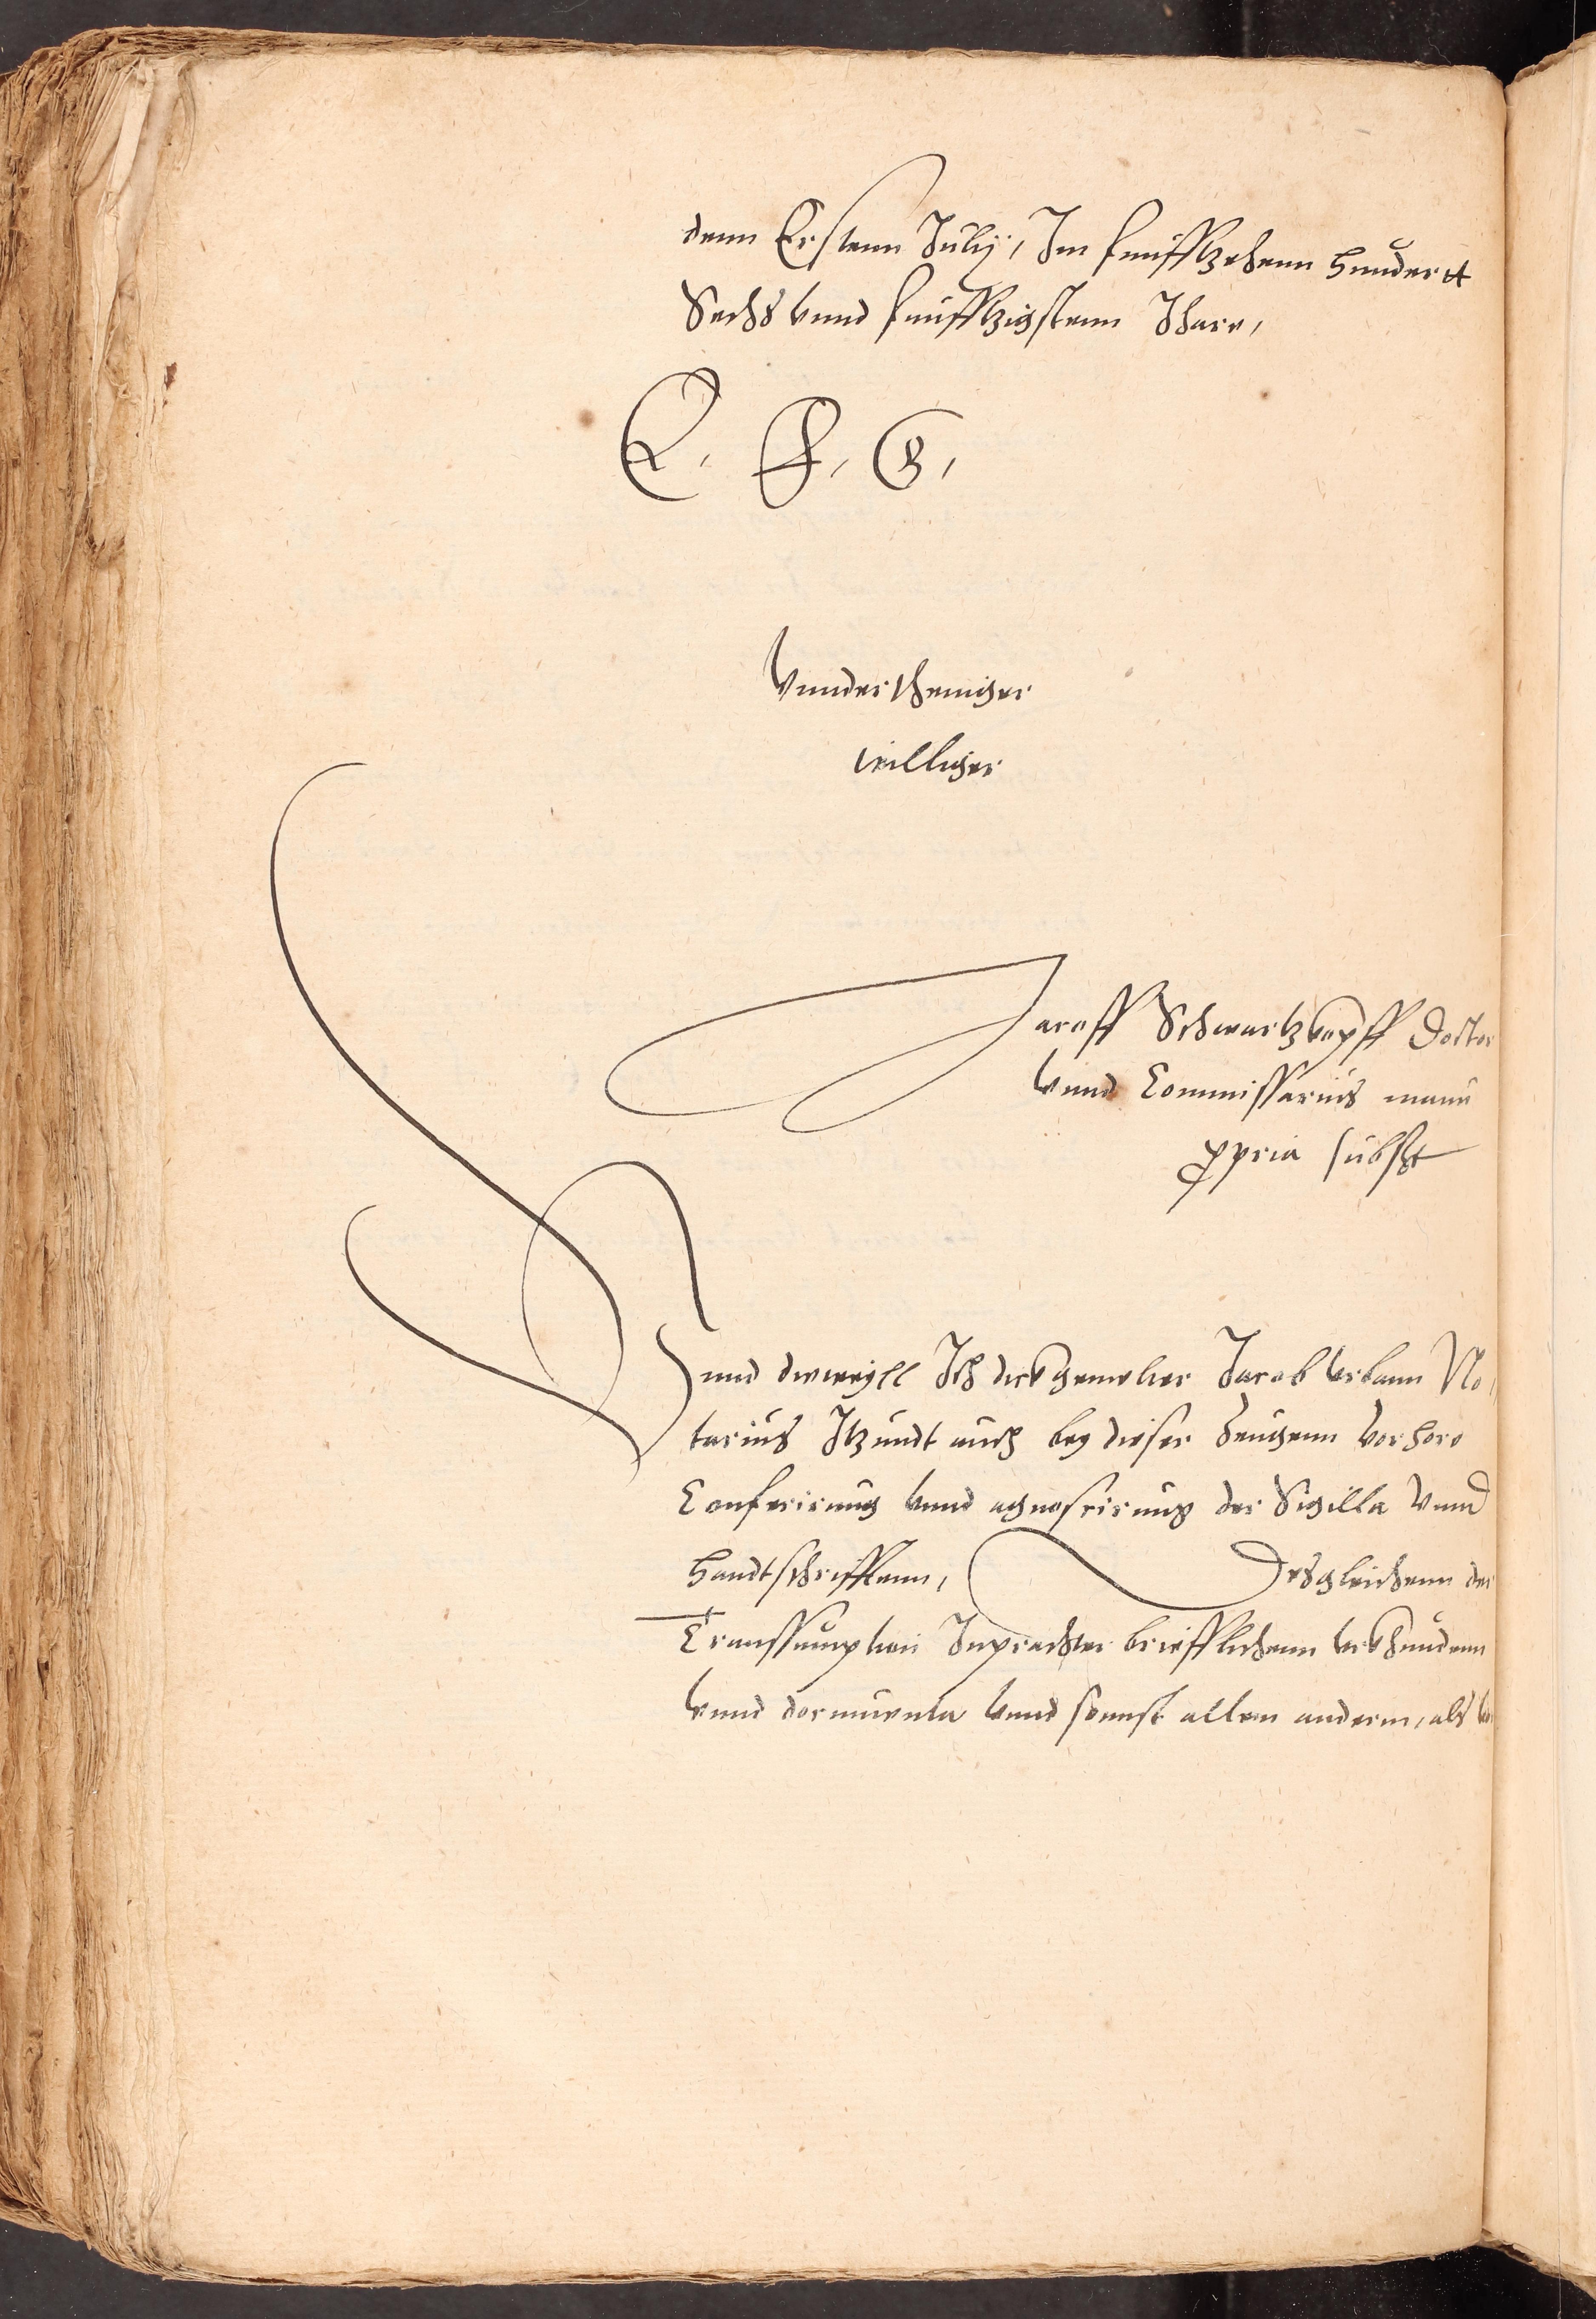 denn Erstenn Julij, Im funfftzehenn hundertt
Sechs vnnd funfftzigstenn Jhare,
E. F. G,
Vnnderthenniger
williger
Jacoff Schwartzkopff Doctor
vnnd Commissarius manu
ppria subsst
Vnnd dieweyll Ich dickgemelter Jacob Urbann No,
tarius Itzundt auch bey dieser Zeugenn Vorhore
Conferirung vnnd agnoscirung der Sigilla Vnnd
handtschrifftenn, Desgleichenn der
Transsumption Inprachter briefflichenn vrkhundenn
Vnnd documenta vnnd sonnst allem anderm, als